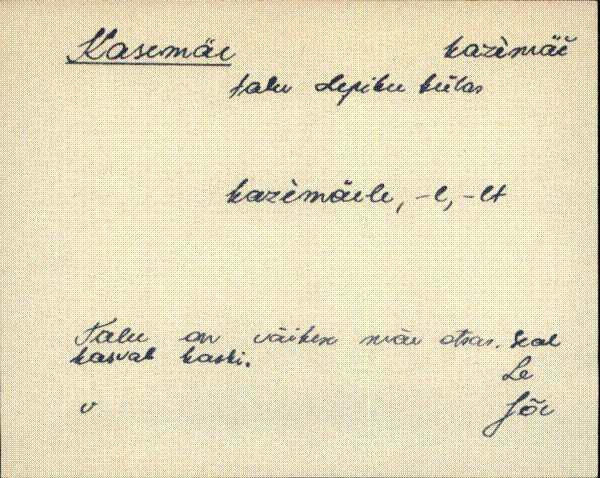 Kasemäe kazèmäe̬
talu Lepiku külas
kazèmäele, -l, -lt
Talu on väikese mäe otsas. Seal
kasvab kaski.
Le
v Jõe